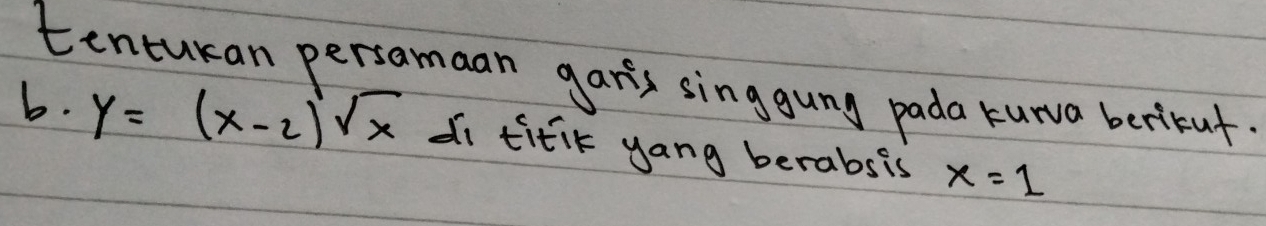 tentukan persamaan garis singgung pada kurva berikut.
b. y = (x-2)√x di titik yang berabsis x = 1